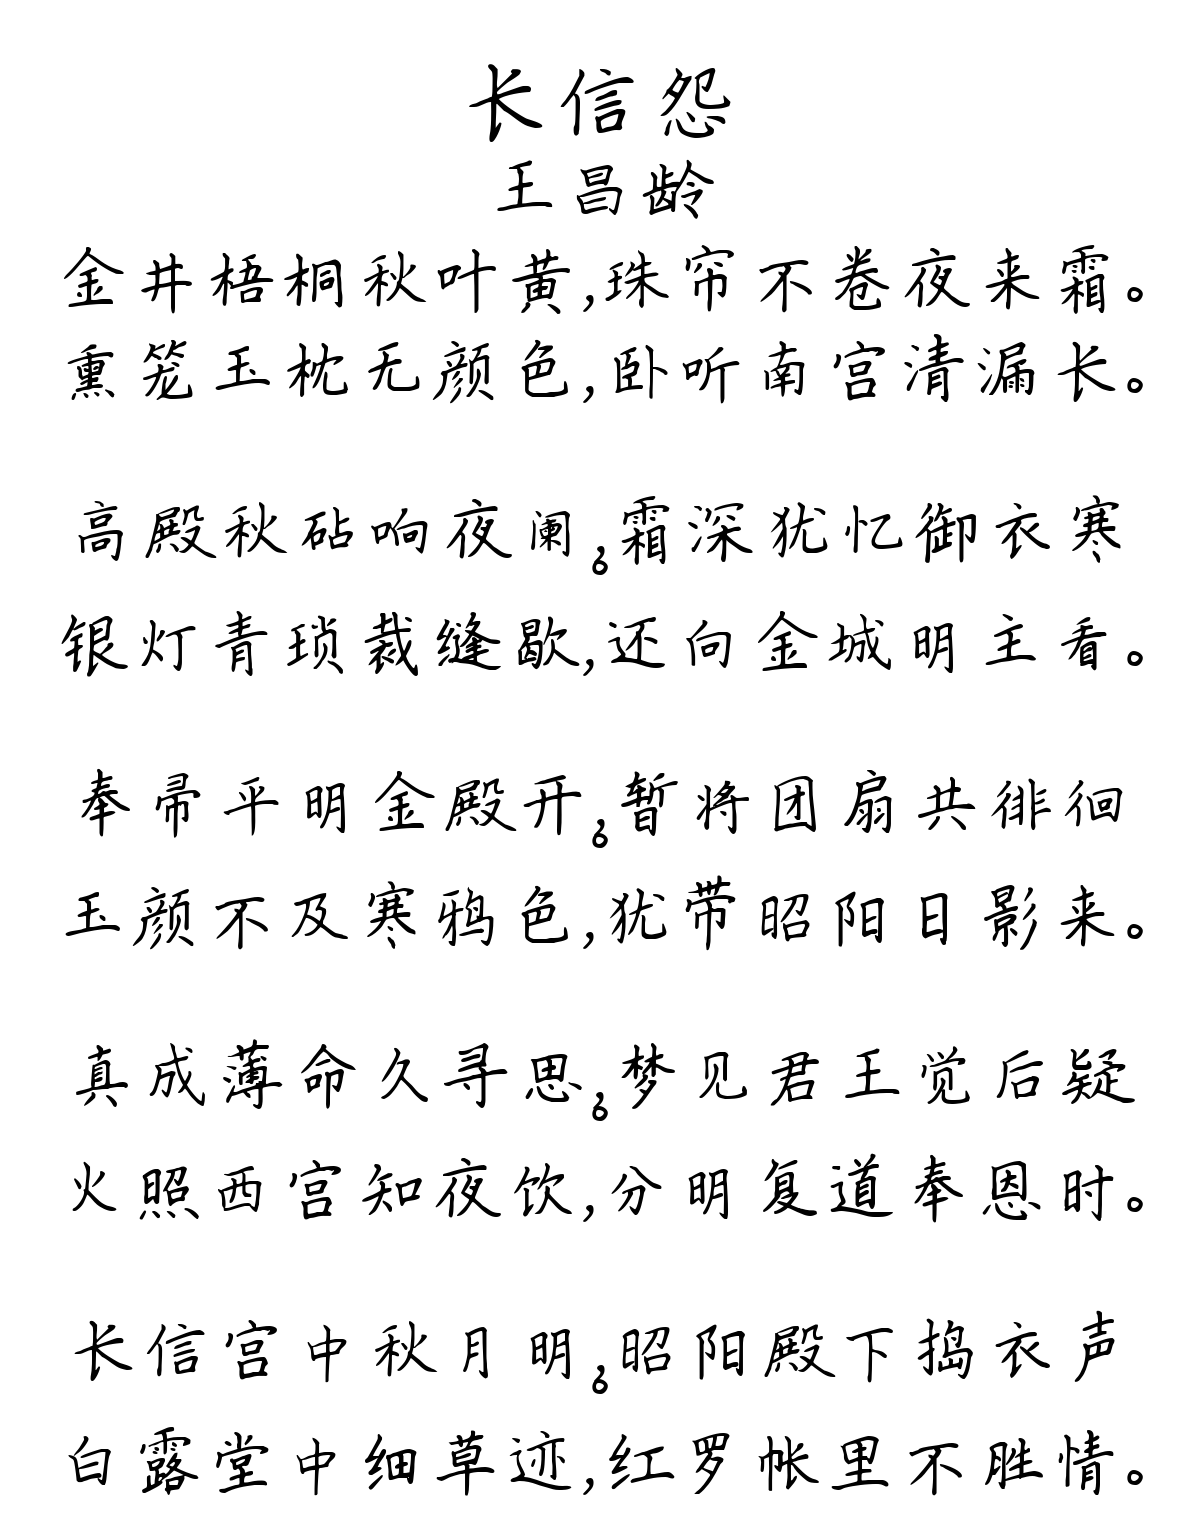 长信怨
王昌龄
金井梧桐秋叶黄,珠帘不卷夜来霜。
熏笼玉枕无颜色,卧听南宫清漏长。
高殿秋砧响夜阑,霜深犹忆御衣寒。
银灯青琐裁缝歇,还向金城明主看。
奉帚平明金殿开,暂将团扇共徘徊。
玉颜不及寒鸦色,犹带昭阳日影来。
真成薄命久寻思,梦见君王觉后疑。
火照西宫知夜饮,分明复道奉恩时。
长信宫中秋月明,昭阳殿下捣衣声。
白露堂中细草迹,红罗帐里不胜情。